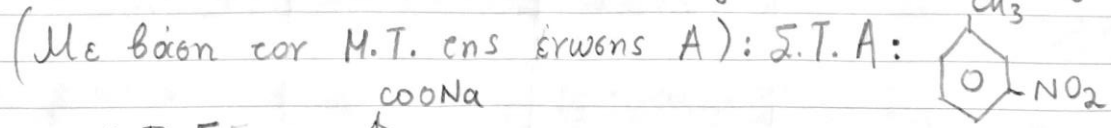 (Με βάση τον Μ.Τ. της ένωσης Α): Σ.Τ.Α: CH3
NO2
COONa